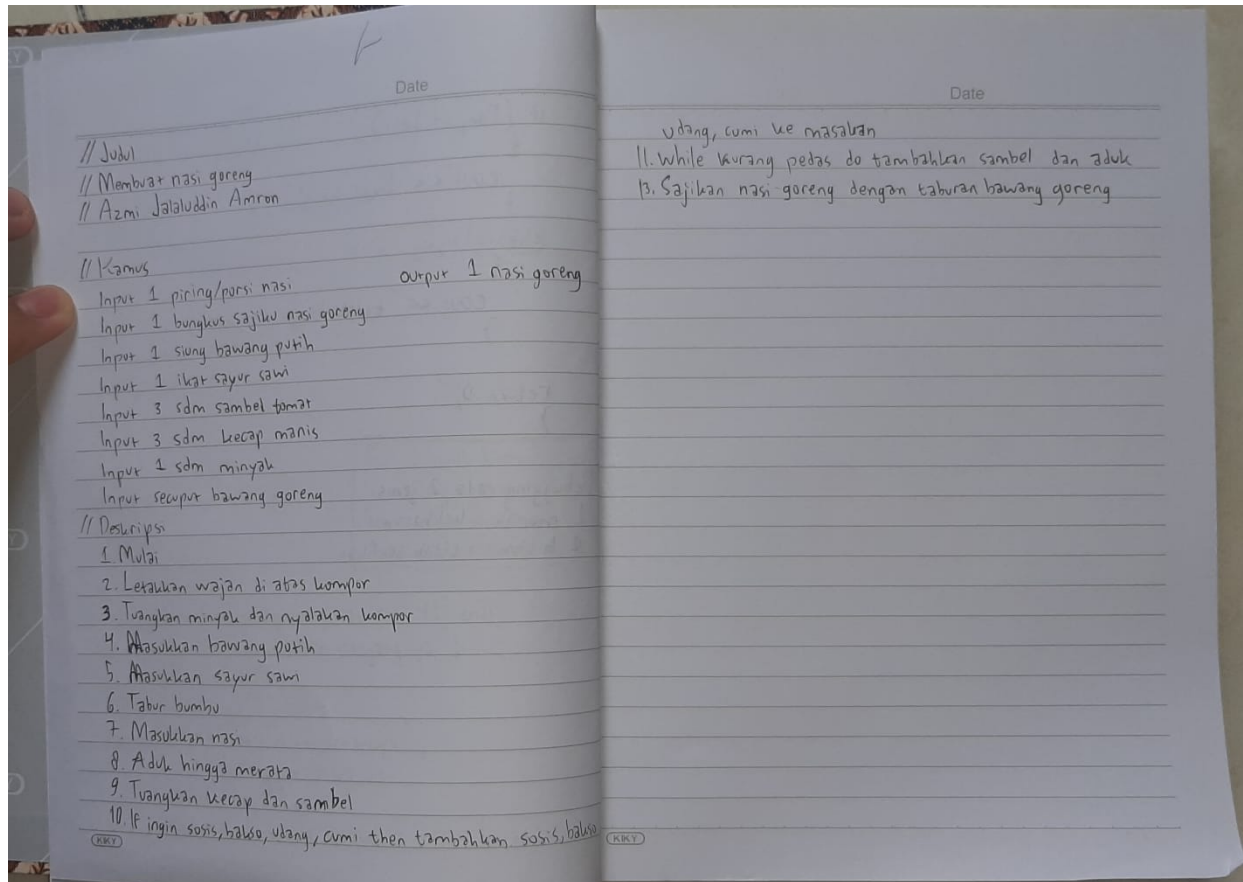 Date
// Judul
// Membuat nasi goreng
// Azmi Jalaluddin Amron
// Kamus
Input 1 piring/porsi nasi output 1 nasi goreng
Input 1 bungkus sajiku nasi goreng
Input 1 siung bawang putih
Input 1 ikat sayur sawi
Input 3 sdm sambel tomat
Input 3 sdm kecap manis
Input 1 sdm minyak
Input secuput bawang goreng
// Deskripsi
1. Mulai
2. Letakkan wajan di atas kompor
3. Tuangkan minyak dan nyalakan kompor
4. Masukkan bawang putih
5. Masukkan sayur sawi
6. Tabur bumbu
7. Masukkan nasi
8. Aduk hingga merata
9. Tuangkan kecap dan sambel
10. If ingin sosis, bakso, udang, cumi then tambahkan sosis, bakso
KIKY
Date
udang, cumi ke masakan
11. While kurang pedas do tambahkan sambel dan aduk
13. Sajikan nasi goreng dengan taburan bawang goreng
KIKY